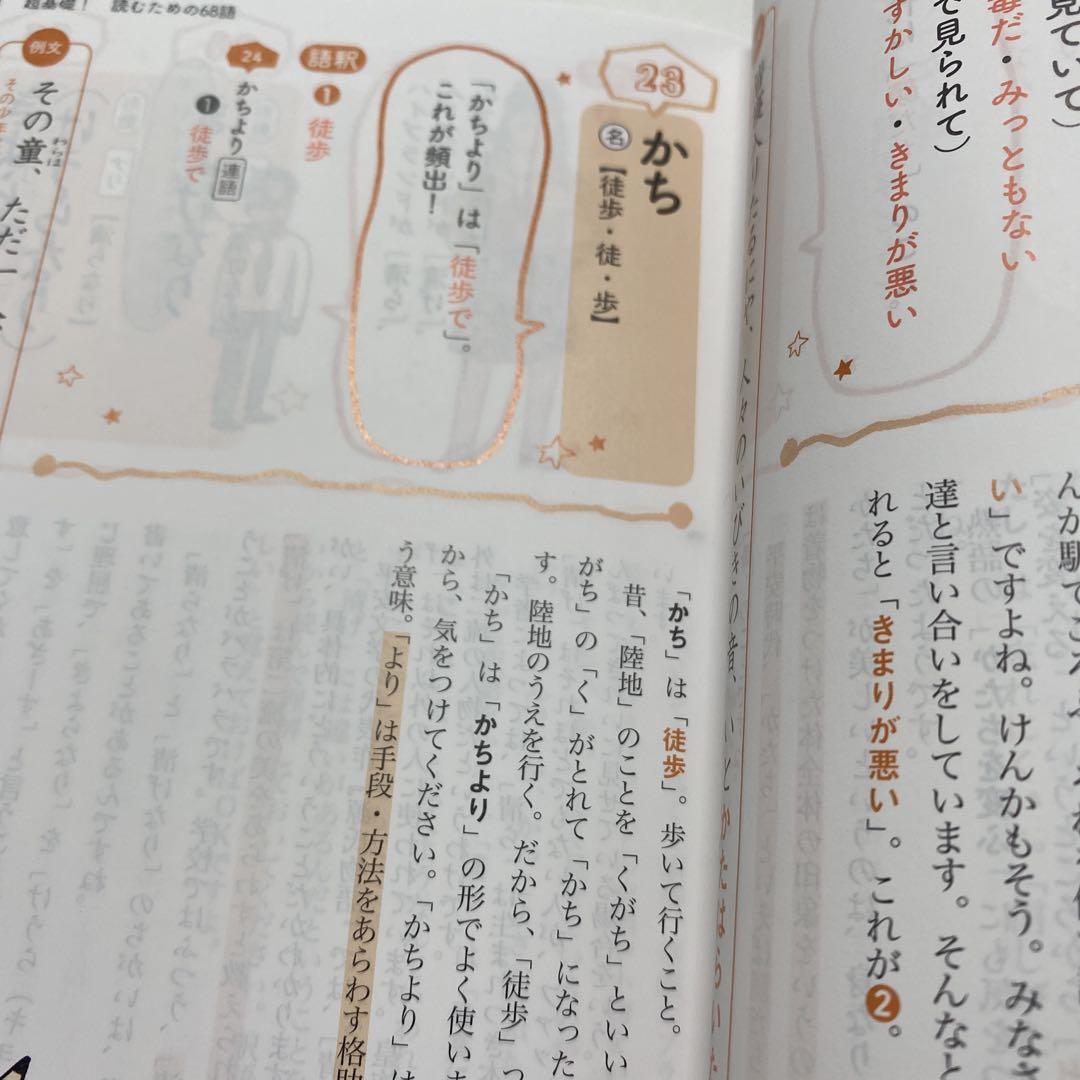 見ていて)
毒だ・みっともない
で見られて)
ずかしい・きまりが悪い
い」ですよね。けんかもそう。みなさ
達と言い合いをしています。そんなと
れると「きまりが悪い」。これが❷。
超基礎! 読むための68語
23
かち
名【徒歩・徒・歩】
「かちより」は「徒歩で」。
これが頻出!
語釈
❶徒歩
24
かちより 連語
❶徒歩で
例文
その童、ただ一
わらは
「かち」は「徒歩」。歩いて行くこと。
昔、「陸地」のことを「くがち」といい
がち」の「く」がとれて「かち」になった
す。陸地のうえを行く。だから、「徒歩」つ
「かち」は「かちより」の形でよく使いま
から、気をつけてください。「かちより」は
う意味。「より」は手段・方法をあらわす格助